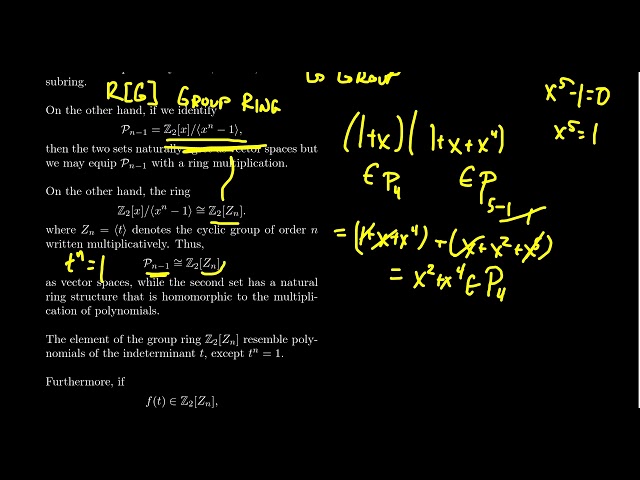 subring.
R[G] GROUP RING
GROUP
On the other hand, if we identify
P_{n−1} = ℤ₂[x]/⟨xⁿ − 1⟩,
then the two sets as vector spaces but
we may equip P_{n−1} with a ring multiplication.
On the other hand, the ring
ℤ₂[x]/⟨xⁿ − 1⟩ ≅ ℤ₂[Zₙ].
where Zₙ = ⟨t⟩ denotes the cyclic group of order n
written multiplicatively. Thus,
tⁿ = 1
P_{n−1} ≅ ℤ₂[Zₙ]
as vector spaces, while the second set has a natural
ring structure that is homomorphic to the multipli-
cation of polynomials.
The element of the group ring ℤ₂[Zₙ] resemble poly-
nomials of the indeterminant t, except tⁿ = 1.
Furthermore, if
f(t) ∈ ℤ₂[Zₙ],
x⁵-1=0
x⁵=1
(1+x)(1+x+x⁴)
∈ P₄ ∈ P₅₋₁
= (1+x+x⁴) + (x+x²+x⁵)
= x²+x⁴ ∈ P₄